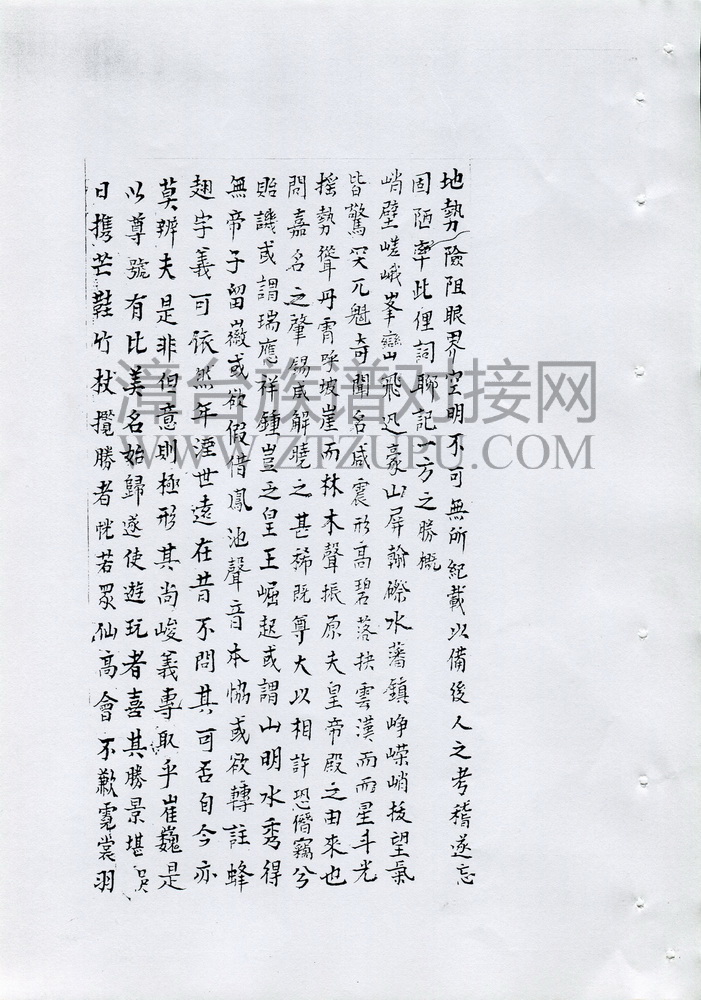 地勢險阻眼界空明不可無所紀載以備後人之考稽遂忘
固陋率此俚詞聊記一方之勝概
峭壁嵯峨峯巒飛迅豪山屏翰礫水藩鎮崢嶸峭拔望氣
皆驚突兀魁奇聞名咸震形高碧落抉雲漢而星斗光
搖勢聳丹霄呼坡崖而林木聲振原夫皇帝殿之由來也
問嘉名之肇錫咸解曉之甚稀既尊大以相許恐僭竊兮
貽譏或謂瑞應祥鍾豈乏皇王崛起或謂山明水秀得
無帝子留 或欲假借鳳池聲音本恊或欲轉註蜂
翅字義可依然年湮世遠在昔不問其可否自今亦
莫辨夫是非但意則極形其尚峻義專取乎崔巍是
以尊號有比美名始歸遂使遊玩者喜其勝景堪
日携芒鞋竹杖攬勝者恍若眾仙高會不歉霓裳羽
漳台族谱对接网
WWW.ZTZUPU.COM